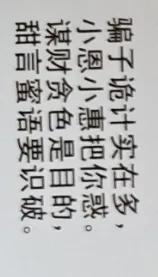 骗子诡计实在多，
小恩小惠把你惑。
谋财贪色是目的，
甜言蜜语要识破。